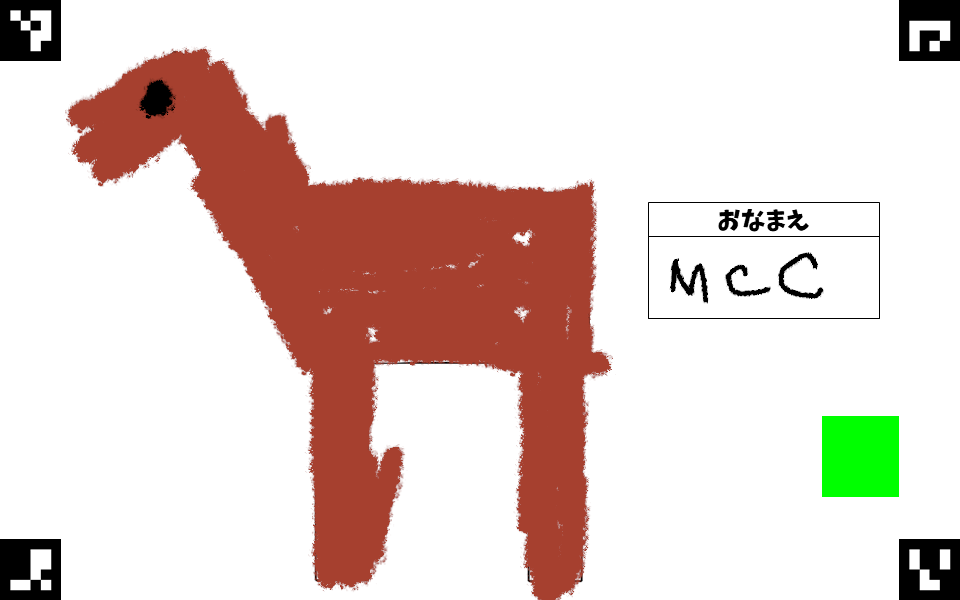 おなまえ
MCC